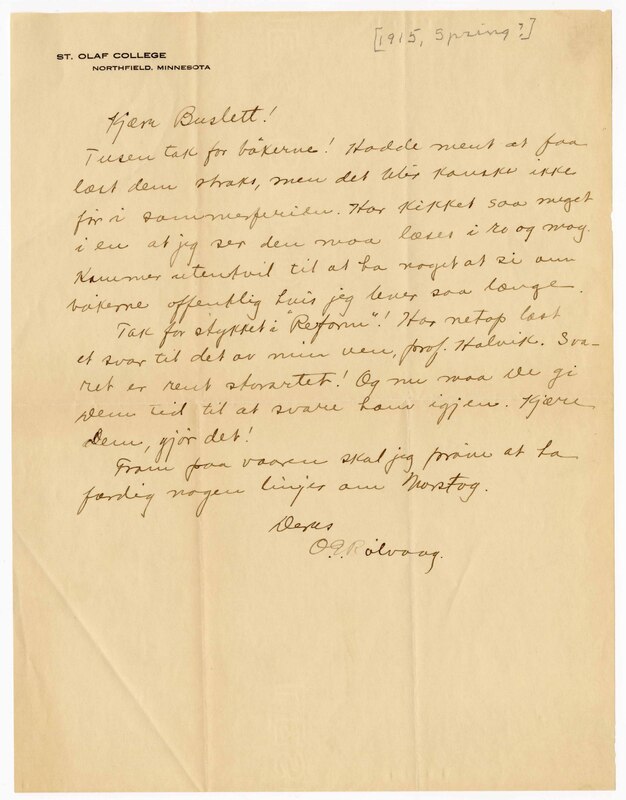 [1915, Spring?]
ST. OLAF COLLEGE
NORTHFIELD, MINNESOTA
Kjære Buslett!
Tusen tak for bøkerne! Hadde ment at faa
læst dem straks, men det blir kanske ikke
før i sommerferien. Har kikket saa meget
i en at jeg ser den maa læses i ro og mag.
Kommer utentvil til at ha noget at si om
bøkerne offentlig hvis jeg lever saa længe.
Tak for stykket i "Reform"! Har netop læst
et svar til det av min ven, prof. Holvik. Sva-
ret er rent storartet! Og nu maa De gi
Dem tid til at svare ham igjen. Kjære
Dem, gjør det!
Fram paa vaaren skal jeg prøve at ha
færdig nogen linjer om Norstog.
Deres
O.E. Rølvaag.